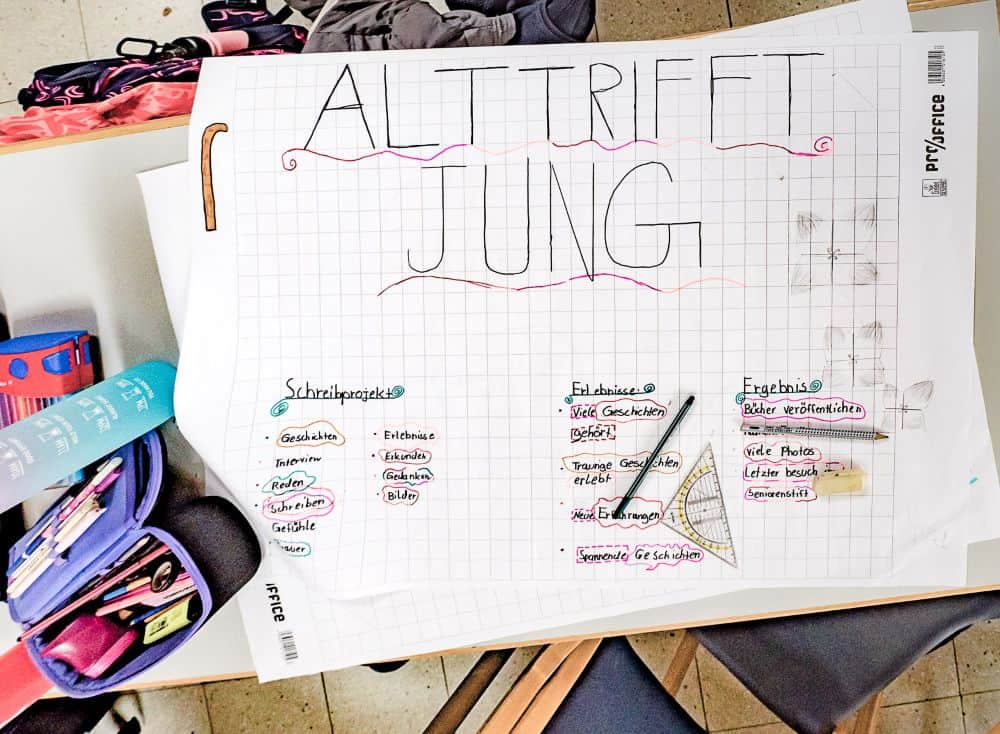 ALT TRIFFT
JUNG
PRO/OFFICE
Schreibprojekt
Geschichten
Interview
Reden
Schreiben
Gefühle
Erlebnisse
Erkunden
Gedanken
Bilder
Erlebnisse:
Viele Geschichten
gehört
Traurige Geschichten
erlebt
Neue Erfahrungen
Spannende Geschichten
Ergebnis
Bücher veröffentlichen
Viele Photos
Letzter besuch
Seniorenstift
OFFICE